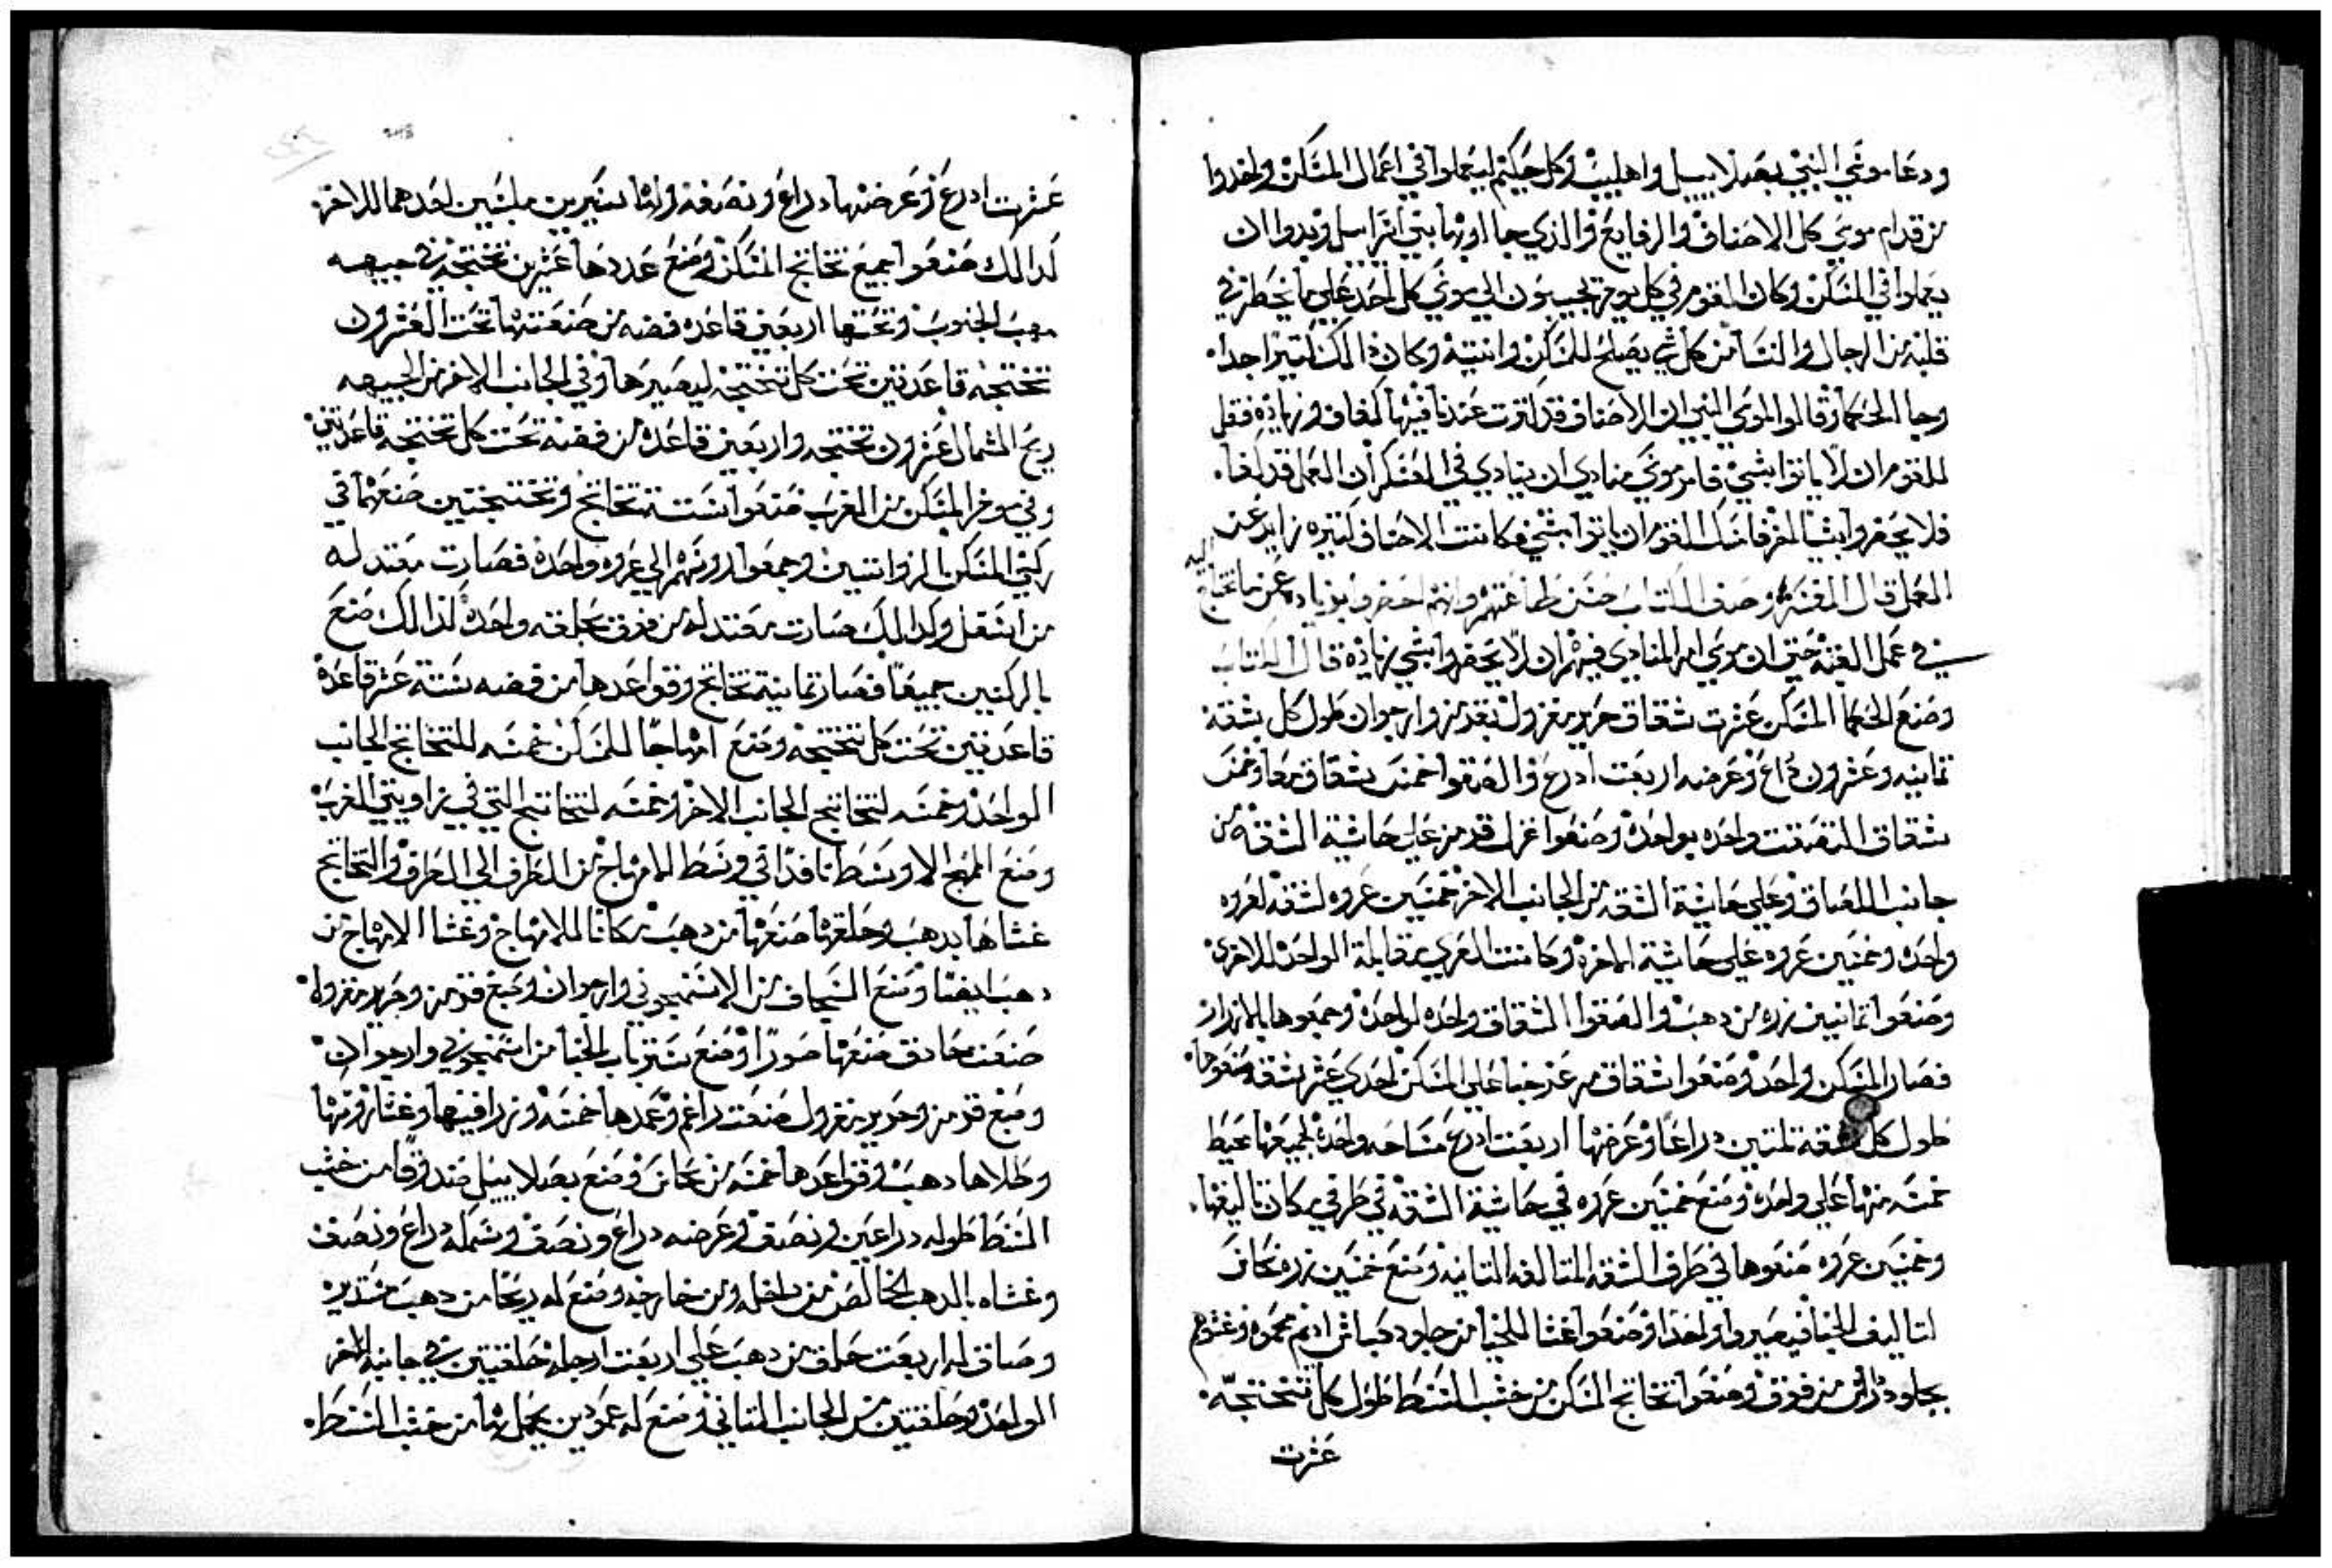 ودعا موسي النبي بصلاييل واهليب وكل حكيم ليعملوا في اعمال المسكن واخدوا
من قدام موسي كل الاصناف والرفايع والذي جااوبها بني اسراييل وبدوا ان
يعملوا في المسكن وكان القوم في كل يوم يجيبون الي موسي كل احد علي ما يخطر في
قلبه من الرجال والنسا من كل شي يصلح للمسكن وانيته وكان ذالك كتيرا جدا
وجا الحكما وقالوا لموسي النبي ان الاصناف قد كترت عندنا فيها كفاف وزياده فقل
للقوم ان لا ياتوا بشي فامر موسي منادي ان ينادي في العسكر ان العمل قد كفا
فلا يحضروا شيا اخر فامسك القوم ان ياتوا بشي فكانت الاصناف كتيره زايد عن
العمل قال المفسر وصف الكتاب حسن طاعتهم وانهم احضروا بزياده عن ما تحتاج اليه
في عمل القبه حتي ان موسي امر المنادي فيهم ان لا يحضروا شي زياده قال الكتاب
وصنع الحكما المسكن عشرت شقاق حرير مغزول بقرمز وارجوان طول كل شقه
تمانيه وعشرون دراع وعرضه اربعت ادرع والصقوا خمسه شقاق معا وخمس
شقاق التصقت واحده بواحده وصنعوا غزل قرمز علي حاشية الشقه من
جانب اللصاق وعلي حاشية الشقه من الجانب الاخر خمسين عروه لشقه لعروه
واحده وخمسين عروه علي حاشية الاخره وكانت العري مقابلة الواحد للاخري
وصنعوا تمانيين زره من دهب والصقوا الشقاق واحده لواحده وجمعوها بالازرار
فصار المسكن واحد وصنعوا شقاق مرعز خبا علي المسكن احدي عشر شقه صنعوها
طول كل شقه تلتين دراعا وعرضها اربعت ادرع مساحه واحده لجميعها تحيط
خمسه منها علي واحده وصنع خمسين عروه في حاشية الشقه في طرفي مكان تاليفها
وخمسين عروه صنعوها في طرف الشقه المتالفه التانيه وصنع خمسين زره نحاس
لتاليف الخبا فيصيروا واحدا وصنعوا غشا للخبا من جلود كباش ادم محمره وغشوهم
بجلود دارش من فوق وصنعوا تخاتج المسكن من خشب الشنطا طول كل تختجه
عشرت
عشرت ادرع وعرضها دراع ونصفه واتنا سيرين ملبسين احدهما للاخر
كدالك صنعوا جميع تخاتج المسكن وصنع عددها عشرين تختجه في جيهه
مهب الجنوب وتحتها اربعين قاعده فضه من صنعتها تحت العشرون
تختجه قاعدتين تحت كل تختجه ليصيرها وفي الجانب الاخر من الجيهه
ريح الشمال عشرون تختجه واربعين قاعده من فضه تحت كل تختجه قاعدتين
وفي موخر المسكن من الغرب صنعوا ستت تخاتج وتختجتين صنعهما في
ركني المسكن الزواتين وجمعوا دونهم الي عروه واحده فصارت معتدله
من اسفل وكدالك صارت معتدله من فوق بحلقه واحده كذالك صنع
بالركنين جميعا فصار تمانية تخاتج وقواعدها من فضه ستة عشر قاعده
قاعدتين تحت كل تختجه وصنع امهاجا للمسكن خمسه للتخاتج الجانب
الواحد وخمسه لتخاتج الجانب الاخر وخمسه لتخاتج التي في زاويتي الغرب
وصنع المهج الاوسط نافدا في وسط الامهاج من الطرف الي الطرف والتخاتج
غشاها بدهب وحلقها صنعها من دهب مكانا للامهاج وغشا الامهاج من
دهب ايضا وصنع السجاف من الاسمنجوني وارجوان وصبغ قرمز وحرير مغزول
صنعت حادق صنعها صورا وصنع ستر باب الخبا من اسمنجوني وارجوان
وصبغ قرمز وحرير مغزول صنعت راقم وعمدها خمسه وزرافينها وغشا روسها
وطلاها دهب وقواعدها خمسه من نحاس وصنع بصلاييل صندوقا من خشب
الشنطا طوله دراعين ونصف وعرضه دراع ونصف وسمكه دراع ونصف
وغشاه بالدهب الخالص من داخله ومن خارجه وصنع له زيحا من دهب مستديره
وصاق له اربعت حلق من دهب علي اربعت ارجله حلقتين في جانبه الاخر
الواحد وحلقتين من الجانب التاني وصنع له عمودين يحمل بها من خشب الشنطا